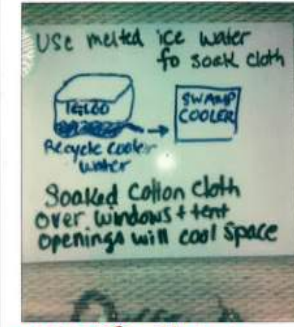 Use melted ice water
to soak cloth
IGLOO
SWAMP
COOLER
Recycle cooler
water
Soaked Cotton Cloth
over windows + tent
openings will cool space